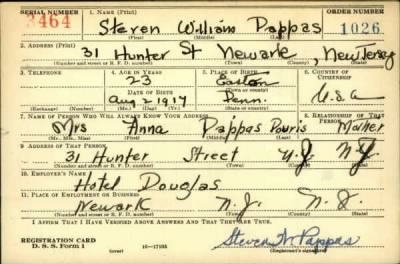 SERIAL NUMBER 1. NAME (Print) ORDER NUMBER
3464 Steven William Pappas 1026
2. ADDRESS (Print)
31 Hunter St Newark, New Jersey
(Number and street or R. F. D. number) (Town) (County) (State)
3. TELEPHONE 4. AGE IN YEARS 5. PLACE OF BIRTH 6. COUNTRY OF CITIZENSHIP
23 Easton
DATE OF BIRTH (Town or county)
Aug 2 1917 Penn. U.S.A
(Exchange) (Number) (Mo.) (Day) (Yr.) (State or country)
7. NAME OF PERSON WHO WILL ALWAYS KNOW YOUR ADDRESS 8. RELATIONSHIP OF THAT PERSON
Mrs Anna Pappas Pouris Mother
(Mr., Mrs., Miss) (First) (Middle) (Last)
9. ADDRESS OF THAT PERSON
31 Hunter Street N.J. N.J.
(Number and street or R. F. D. number) (Town) (County) (State)
10. EMPLOYER'S NAME
Hotel Douglas
11. PLACE OF EMPLOYMENT OR BUSINESS
Newark N.J. N.J.
(Number and street or R. F. D. number) (Town) (County) (State)
I AFFIRM THAT I HAVE VERIFIED ABOVE ANSWERS AND THAT THEY ARE TRUE.
REGISTRATION CARD
D. S. S. Form 1 (over) 16—17105 Steven W Pappas
(Registrant's signature)